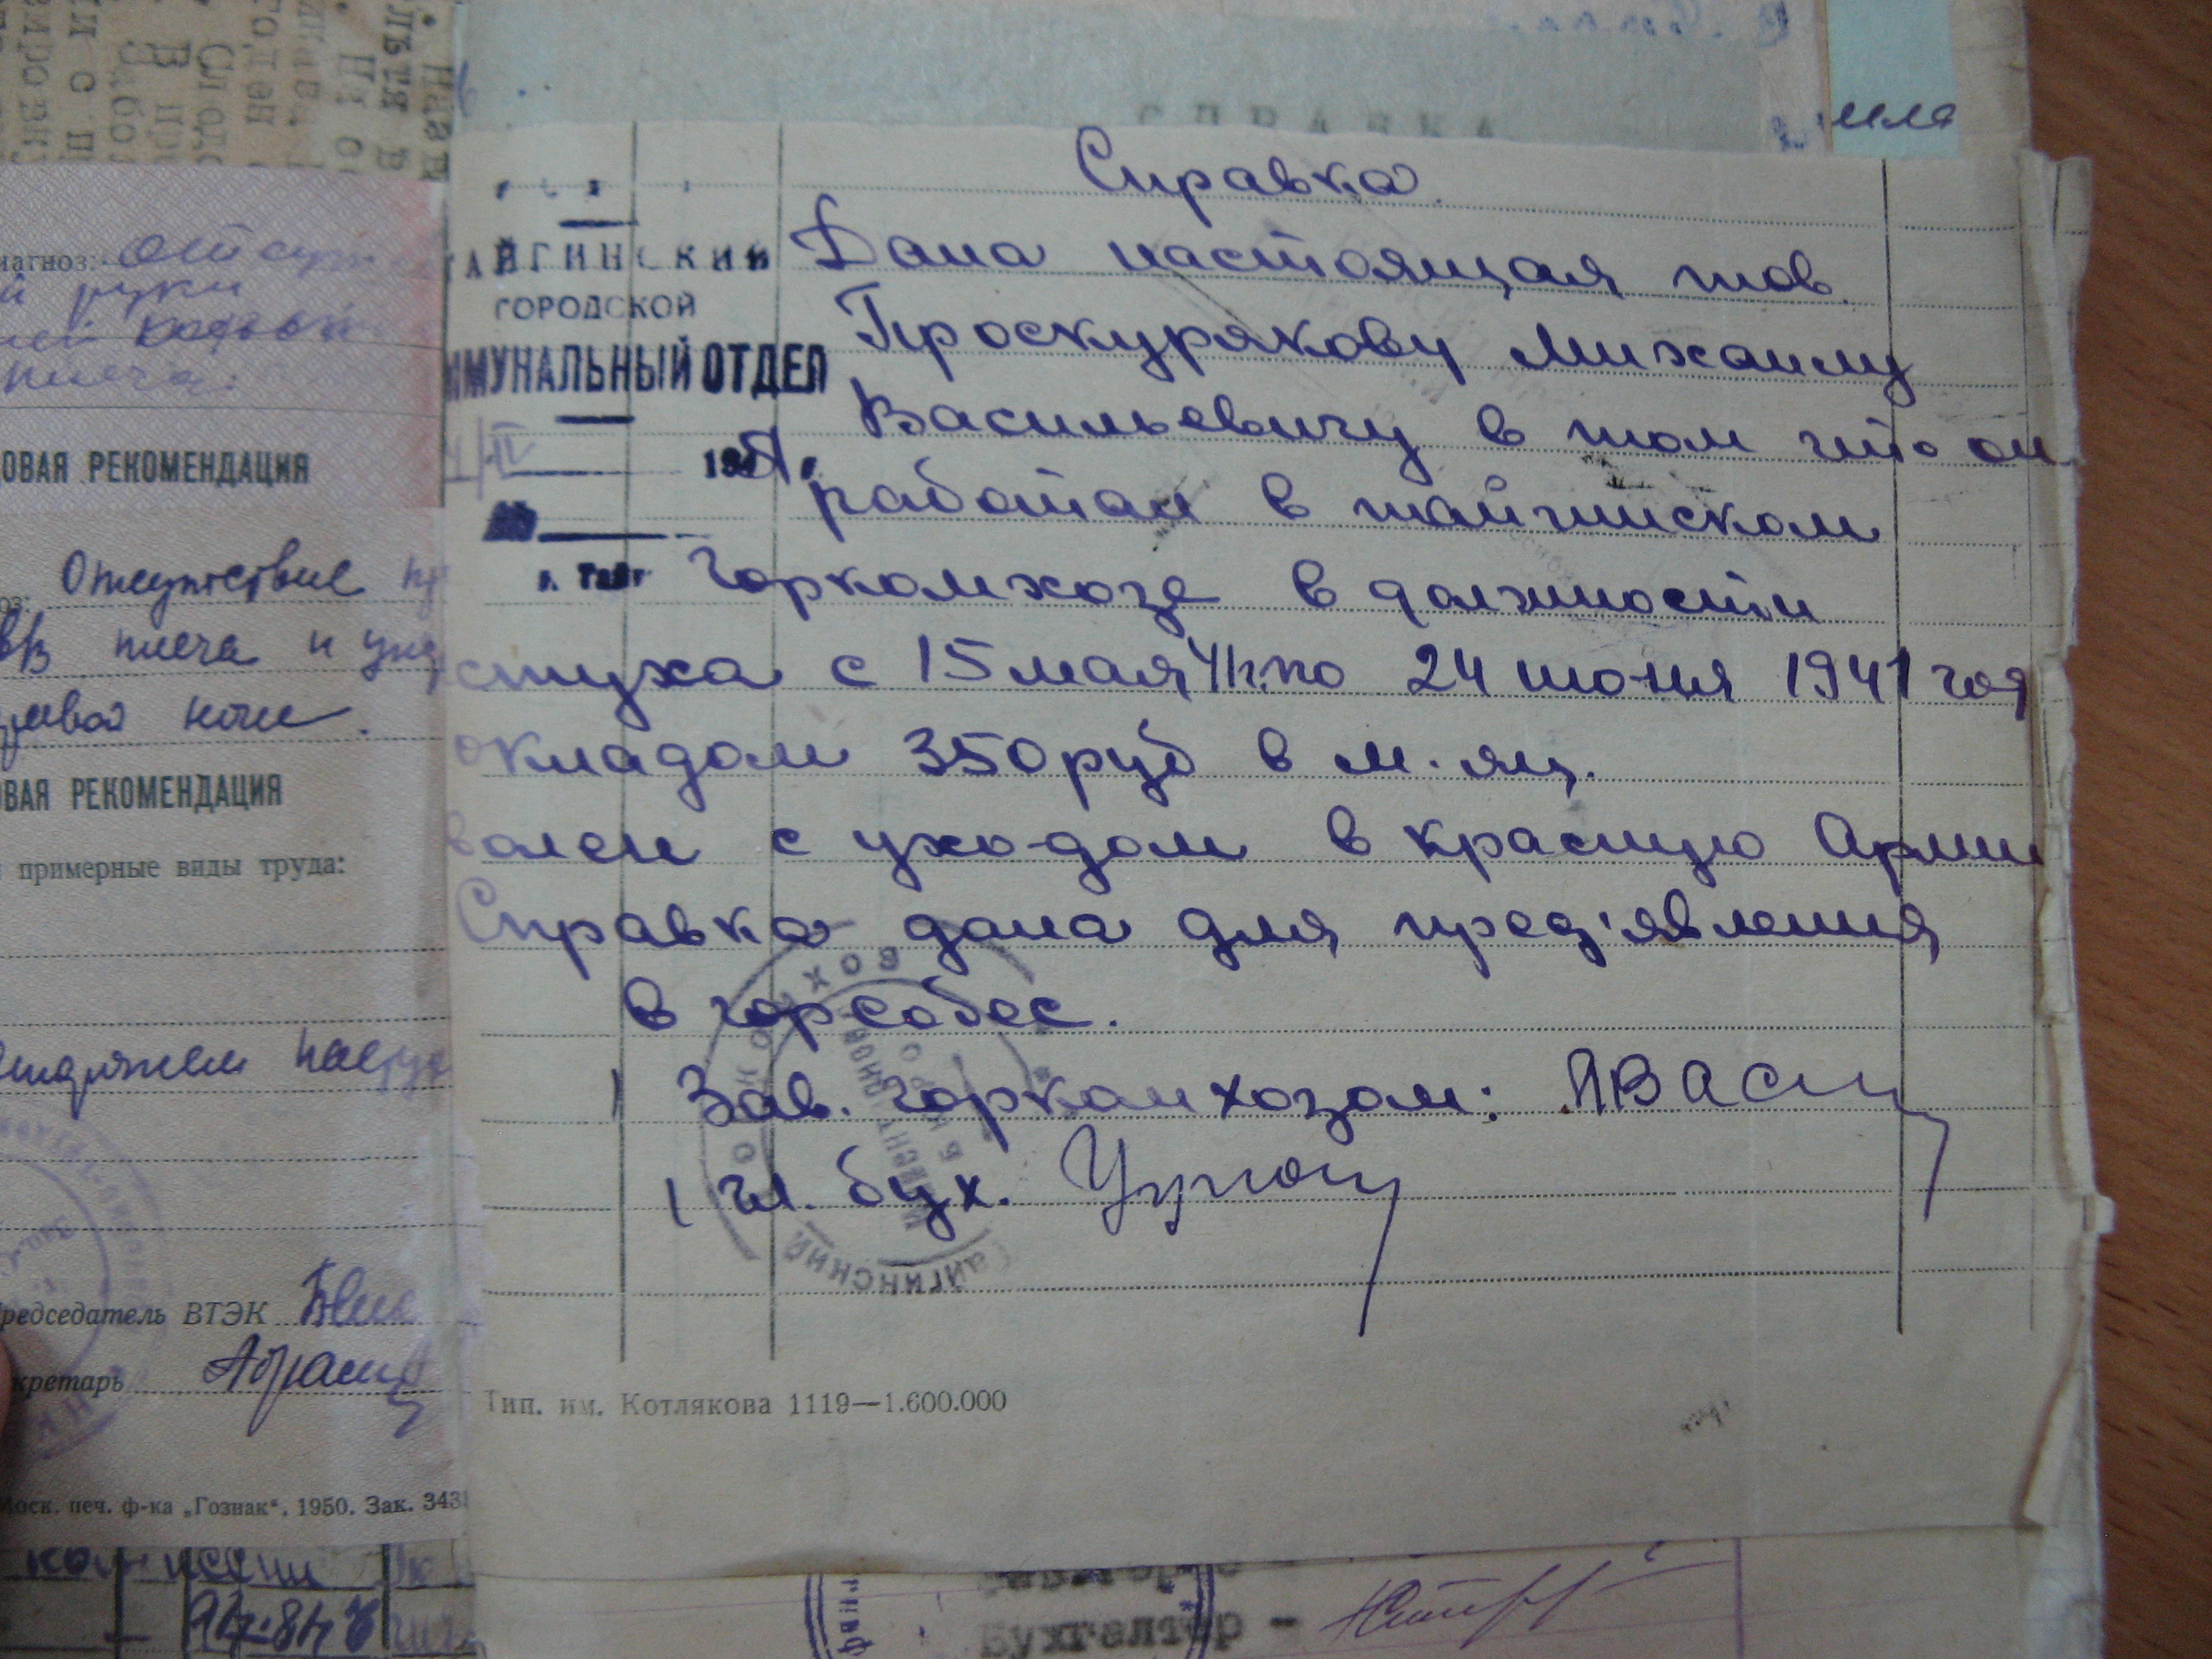 СПРАВКА
Справка.
ТАЙГИНСКИЙ
ГОРОДСКОЙ
ММУНАЛЬНЫЙ ОТДЕЛ
IV 1951 г.
г. Тайг
Дана настоящая тов.
Проскурякову Михаилу
Васильевичу в том что он
работал в тайгинском
Горкомхозе в должности
стуха с 15 мая 41г. по 24 июня 1941 год
окладом 350 руб в м-яц.
волен с уходом в красную Арми
Справка дана для пред'явления
в горсобес.
Зав. Горкомхозом:
Гл. бух.
ТАЙГИНСКИЙ
Тип. им. Котлякова 1119—1.600.000
иагноз: отсут
й руки
плеча
ОВАЯ РЕКОМЕНДАЦИЯ
Отсутствие
плеча и
ОВАЯ РЕКОМЕНДАЦИЯ
примерные виды труда:
редседатель ВТЭК
кретарь
Моск. печ. ф-ка „Гознак“, 1950. Зак. 343
комиссии
Бухгалтер -